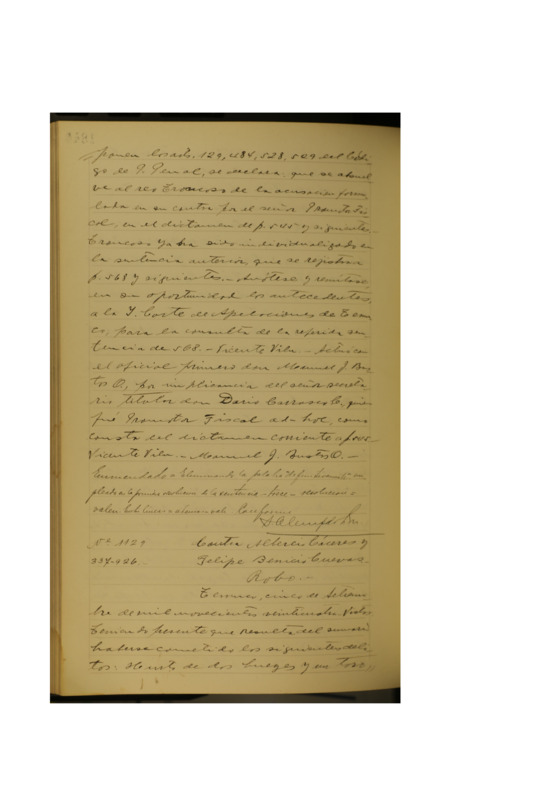 ponen los arts. 129, 484, 528, 529 del Códi-
go de P. Penal, se declara: que se absuel
ve al reo Troncoso de la acusación formu
lada en su contra por el señor Promotor Fis
cal, en el dictamen de p. 545 y siguientes.
Troncoso ya ha sido individualizado en
la sentencia anterior, que se registra a
p. 568 y siguientes. - Anótese y remítanse
en su oportunidad los antecedentes,
a la I. Corte de Apelaciones de Temu
co, para la consulta de la referida sen
tencia de 568. - Vicente Vila - Actuó en
el oficial primero don Manuel J. Bus
tos O., por implicancia del señor secreta
rio titular don Darío Carrasco C., quien
fué Promotor Fiscal ad-hoc, como
consta del dictamen corriente a fojas
Vicente Vila. - Manuel J. Bustos O. -
Enmendado
vale. Conforme
Nº 1129 Contra Cáceres y
337-926. Felipe Cuevas.
Robo. -
Temuco, cinco de Setiem
bre de mil novecientos veintisiete. Vistos
teniendo presente que resulta del sumario
haberse cometido los siguientes deli
tos: Hurto de dos bueyes y un toro,